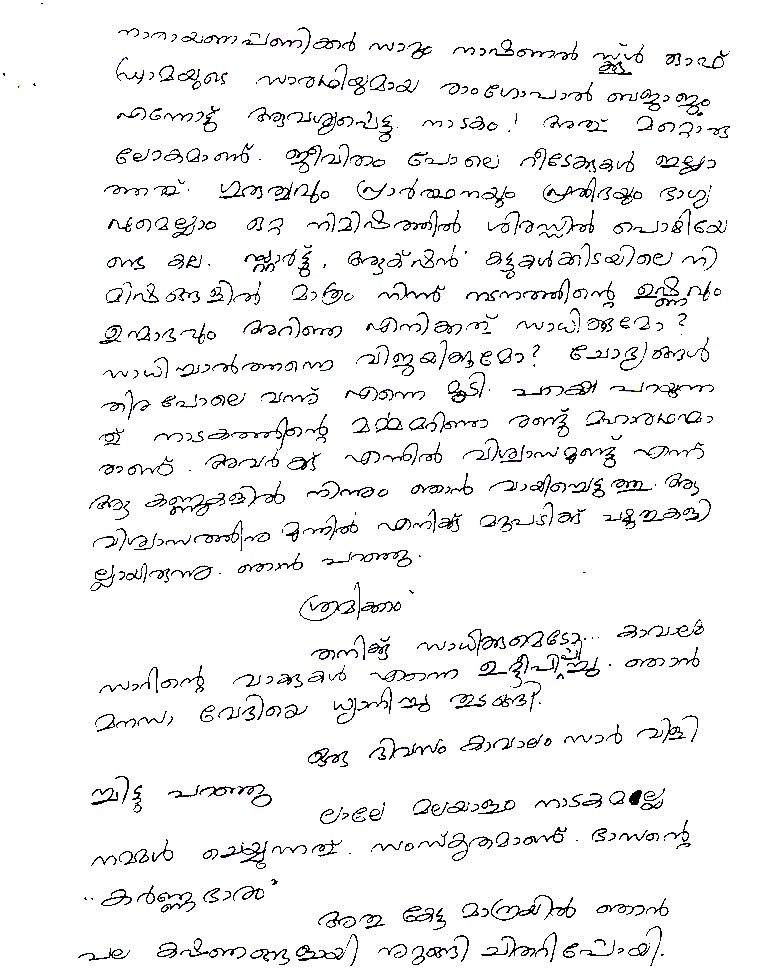 നാരായണപണിക്കർ സാറും നാഷണൽ സ്കൂൾ ഓഫ്
ഡ്രാമയുടെ സാരഥിയുമായ രാംഗോപാൽ ബജാജും
എന്നോട് ആവശ്യപ്പെട്ടു. നാടകം! അത് മറ്റൊരു
ലോകമാണ്. ജീവിതം പോലെ റീടേക്കുകൾ ഇല്ലാ
ത്തത്. ഗുരുത്വവും പ്രാർത്ഥനയും പ്രതിഭയും ഭാഗ്യ
വുമെല്ലാം ഒറ്റ നിമിഷത്തിൽ ശിരസ്സിൽ പൊഴിയേ
ണ്ട കല. സ്റ്റാർട്ട്, ആക്ഷൻ കട്ടുകൾക്കിടയിലെ നി
മിഷങ്ങളിൽ മാത്രം നിന്ന് നടനത്തിന്റെ ഉഷ്ണവും
ഉന്മാദവും അറിഞ്ഞ എനിക്കത് സാധിക്കുമോ?
സാധിച്ചാൽത്തന്നെ വിജയിക്കുമോ? ചോദ്യങ്ങൾ
തിര പോലെ വന്ന് എന്നെ മൂടി. പക്ഷെ പറയുന്ന
ത് നാടകത്തിന്റെ മർമ്മമറിഞ്ഞ രണ്ട് മഹാരഥന്മാ
രാണ്. അവർക്ക് എന്നിൽ വിശ്വാസമുണ്ട് എന്ന്
ആ കണ്ണുകളിൽ നിന്നും ഞാൻ വായിച്ചെടുത്തു. ആ
വിശ്വാസത്തിനു മുന്നിൽ എനിക്ക് മറുപടിക്ക് പഴുതുകളി
ല്ലായിരുന്നു. ഞാൻ പറഞ്ഞു.
ശ്രമിക്കാം
തനിക്ക് സാധിക്കുമെടോ... കാവാലം
സാറിന്റെ വാക്കുകൾ എന്നെ ഉദ്ദീപിപ്പിച്ചു. ഞാൻ
മനസാ വേദിയെ ധ്യാനിച്ചു തുടങ്ങി.
ഒരു ദിവസം കാവാലം സാർ വിളി
ച്ചിട്ടു പറഞ്ഞു
ലാലേ മലയാളം നാടകമല്ല
നമ്മൾ ചെയ്യുന്നത്. സംസ്കൃതമാണ്. ഭാസന്റെ
"കർണ്ണഭാരം"
അതു കേട്ട മാത്രയിൽ ഞാൻ
പല കഷണങ്ങളായി നുറുങ്ങി ചിതറിപ്പോയി.